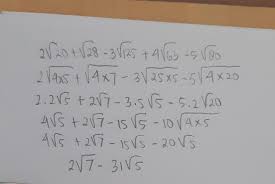 2√20 + √28 - 3√125 + 4√63 - 5√80
2√4×5 + √4×7 - 3√25×5 - 5√4×20
2.2√5 + 2√7 - 3.5√5 - 5.2√20
4√5 + 2√7 - 15√5 - 10√4×5
4√5 + 2√7 - 15√5 - 20√5
2√7 - 31√5